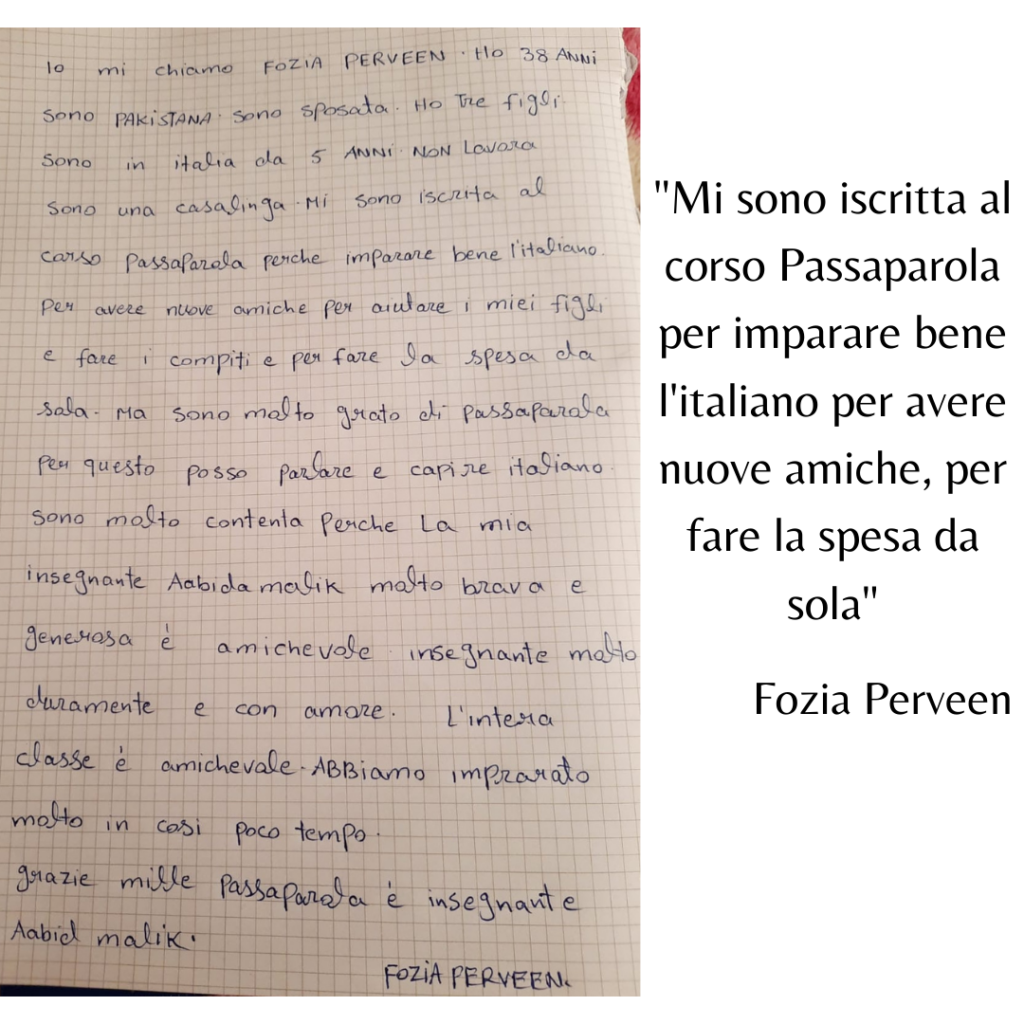 Io mi chiamo FOZIA PERVEEN. Ho 38 ANNi
sono PAKiSTANA. sono sposata. Ho Tre figli.
sono in italia da 5 ANNi. NON Lavora
sono una casalinga. Mi sono iscrita al
corso Passaparola perche imparare bene l'italiano.
Per avere nuove amiche per aiutare i miei figli
e fare i compiti e per fare la spesa da
sala. Ma sono molto grato di passaparola
Per questo posso parlare e capire italiano.
Sono molto contenta Perche La mia
insegnante Aabida malik molto brava e
generosa è amichevole insegnante molto
duramente e con amore. L'intera
classe è amichevale. ABBiamo imprarato
molto in cosi poco tempo.
grazie mille Passaparola è insegnante
Aabid malik.
FOZiA PERVEEN.
"Mi sono iscritta al
corso Passaparola
per imparare bene
l'italiano per avere
nuove amiche, per
fare la spesa da
sola"
Fozia Perveen